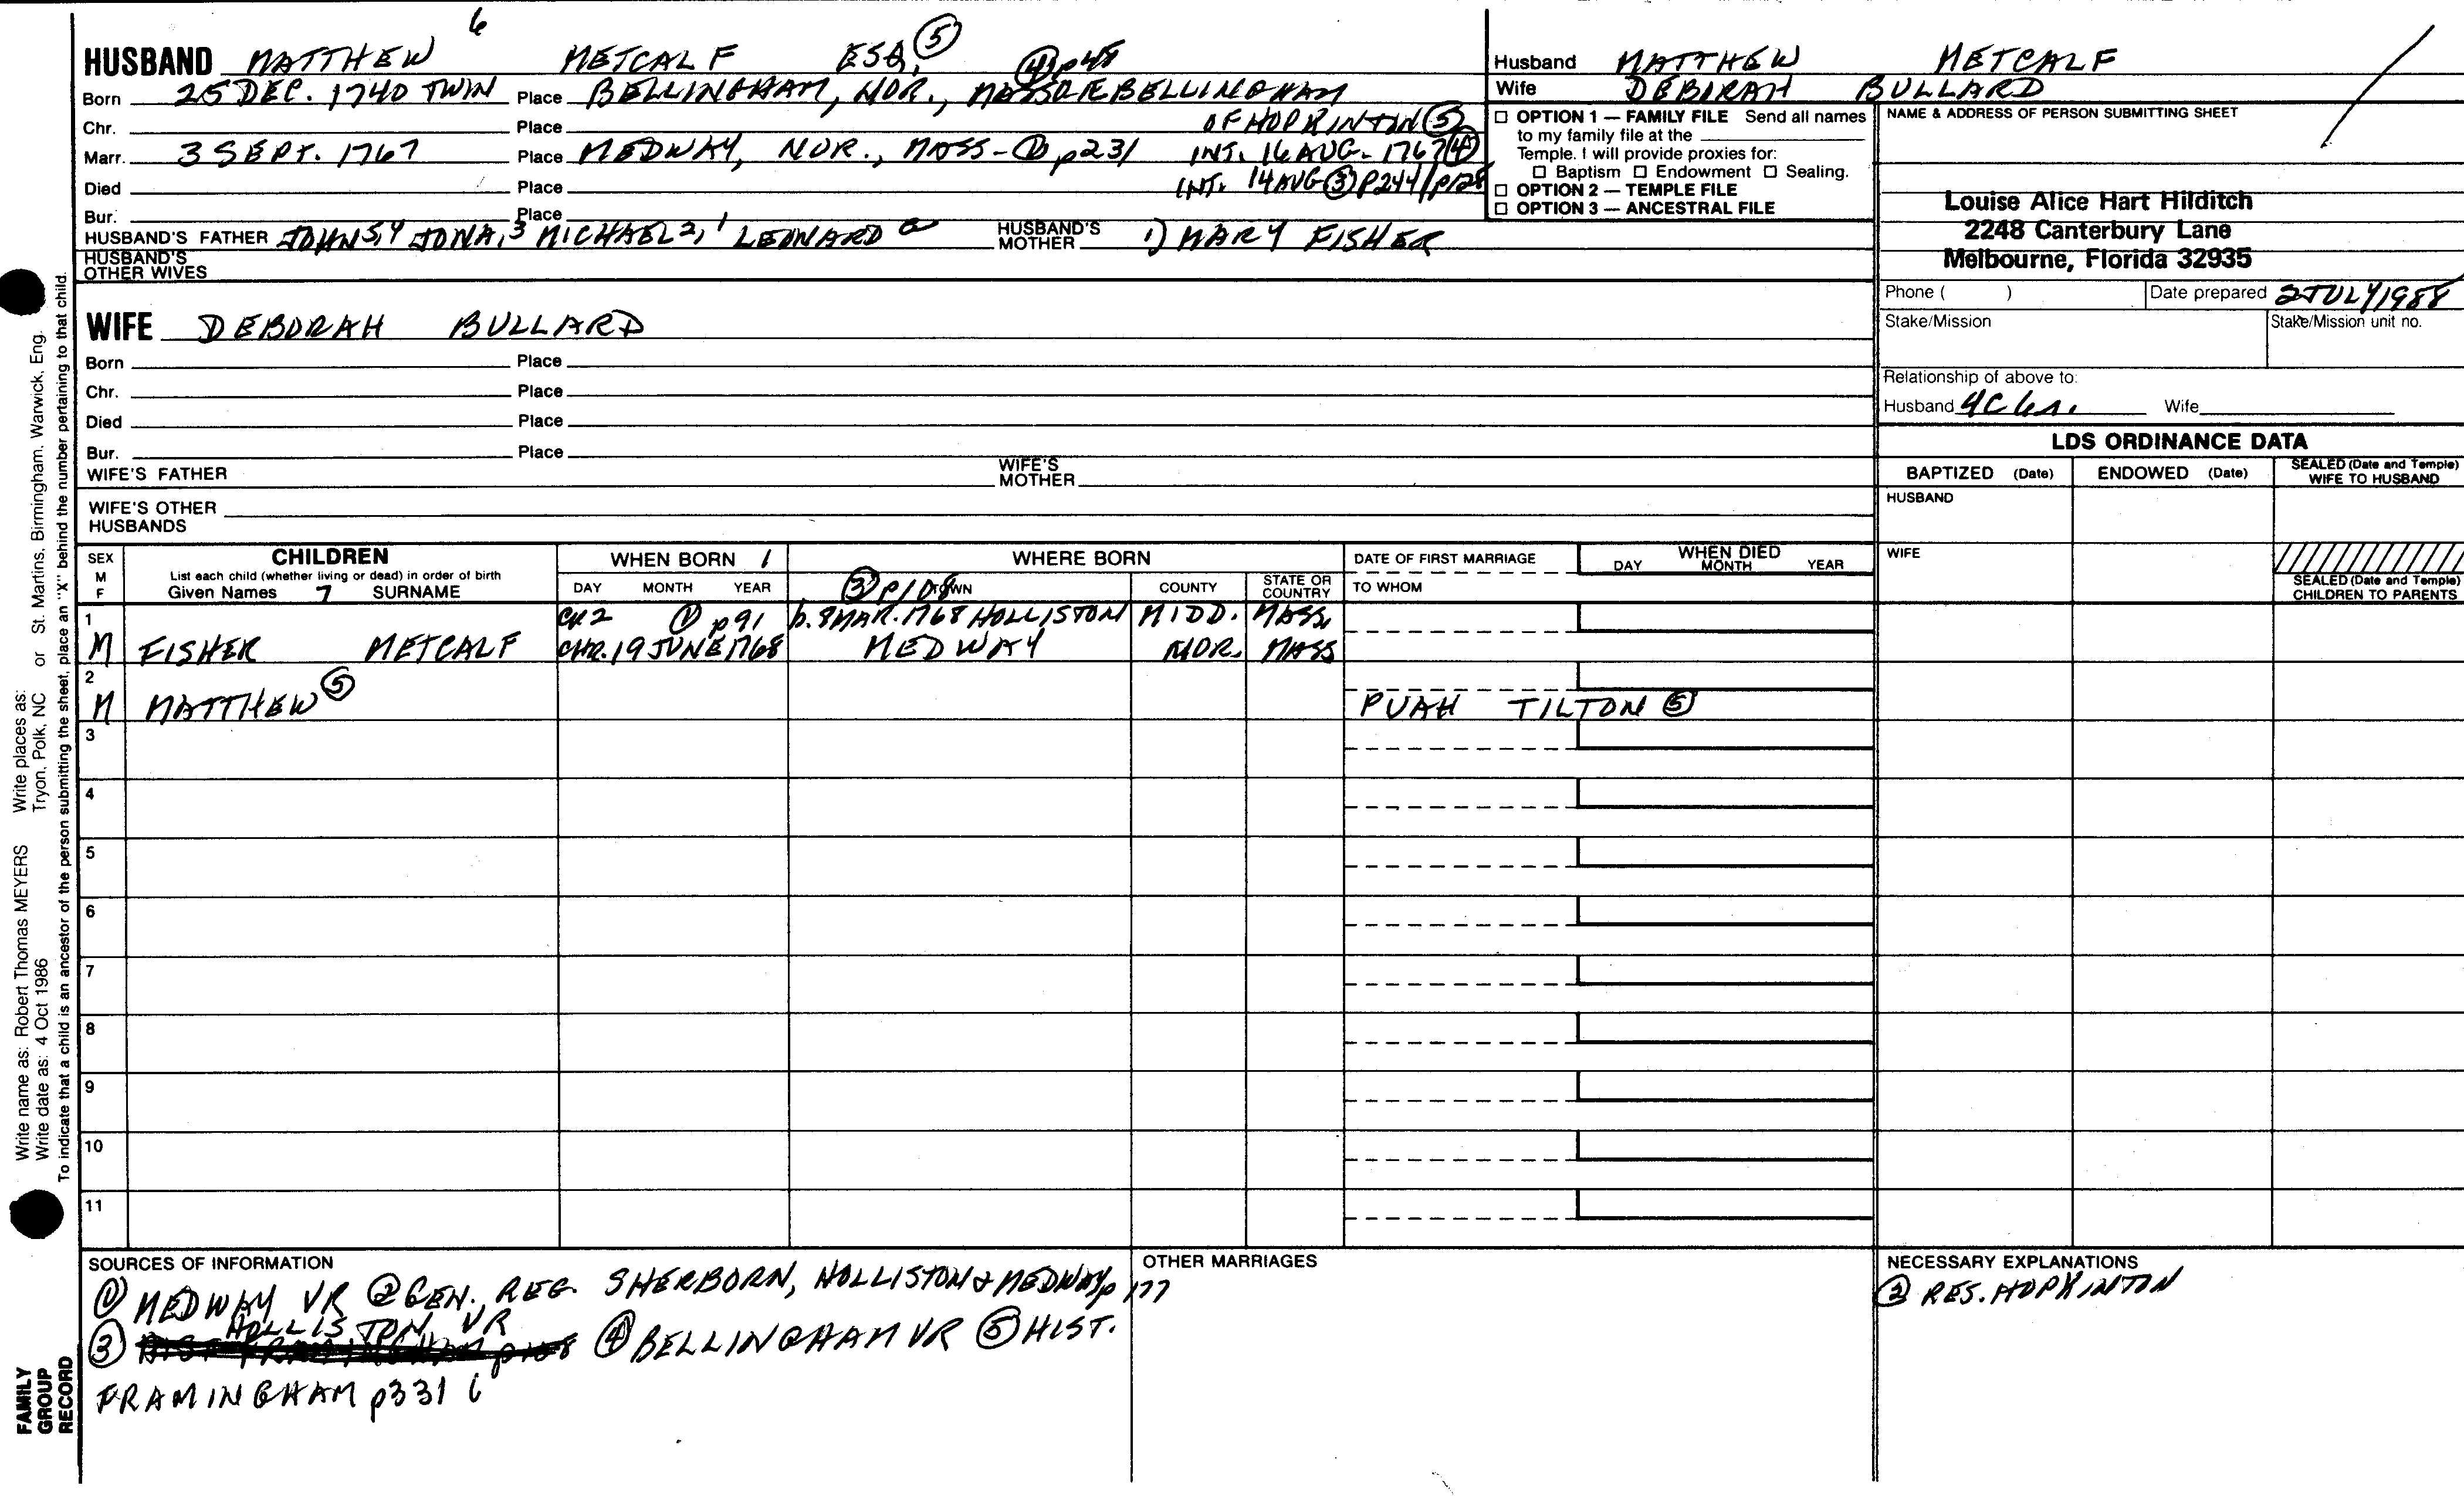 6
HUSBAND MATTHEW METCALF ESQ. ⑤
④ p48
Born 25 DEC. 1740 TWIN Place BELLINGHAM, NOR., BELLINGHAM
Chr. Place OF HOPKINTON ⑤
Marr. 3 SEPT. 1767 Place MEDWAY, NOR., MASS - ① p231 INT. 16 AUG. 1767 ④
Died Place INT. 14 AUG ③ P244/p128
Bur. Place
HUSBAND'S FATHER JOHN 5,4 JONA, 3 MICHAEL 2, 1 LEONARD a HUSBAND'S MOTHER 1) MARY FISHER
HUSBAND'S OTHER WIVES
Husband MATTHEW METCALF
Wife DEBORAH BULLARD
☐ OPTION 1 — FAMILY FILE Send all names
to my family file at the
Temple. I will provide proxies for:
☐ Baptism ☐ Endowment ☐ Sealing.
☐ OPTION 2 — TEMPLE FILE
☐ OPTION 3 — ANCESTRAL FILE
NAME & ADDRESS OF PERSON SUBMITTING SHEET
Louise Alice Hart Hilditch
2248 Canterbury Lane
Melbourne, Florida 32935
Phone ( ) Date prepared 2 JULY 1988
Stake/Mission Stake/Mission unit no.
Relationship of above to:
Husband 4C 6r. Wife
WIFE DEBORAH BULLARD
Born Place
Chr. Place
Died Place
Bur. Place
WIFE'S FATHER WIFE'S MOTHER
WIFE'S OTHER HUSBANDS
LDS ORDINANCE DATA
BAPTIZED (Date) ENDOWED (Date) SEALED (Date and Temple) WIFE TO HUSBAND
HUSBAND
WIFE
SEALED (Date and Temple) CHILDREN TO PARENTS
SEX M F CHILDREN WHEN BORN / WHERE BORN DATE OF FIRST MARRIAGE WHEN DIED
List each child (whether living or dead) in order of birth DAY MONTH YEAR
Given Names 7 SURNAME DAY MONTH YEAR ③ p108 TOWN COUNTY STATE OR COUNTRY TO WHOM
1 CH 2 ① p91 b. 8 MAR. 1768 HOLLISTON MIDD. MASS.
M FISHER METCALF CHR. 19 JUNE 1768 MEDWAY NOR. MASS
2
M MATTHEW ⑤ PUAH TILTON ⑤
3
4
5
6
7
8
9
10
11
SOURCES OF INFORMATION
① MEDWAY VR ② GEN. REG. SHERBORN, HOLLISTON & MEDWAY p 177
③ HOLLISTON VR ④ BELLINGHAM VR ⑤ HIST.
FRAMINGHAM p331
OTHER MARRIAGES
NECESSARY EXPLANATIONS
② RES. HOPKINTON
Write name as: Robert Thomas MEYERS Write places as:
Write date as: 4 Oct 1986 Tryon, Polk, NC or St. Martins, Birmingham, Warwick, Eng.
To indicate that a child is an ancestor of the person submitting the sheet, place an "X" behind the number pertaining to that child.
FAMILY
GROUP
RECORD